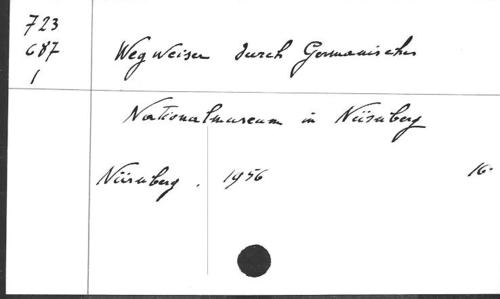 723
687
1
Wegweiser durch Germanisches
Nationalmuseum in Nürnberg
Nürnberg. 1956 16.